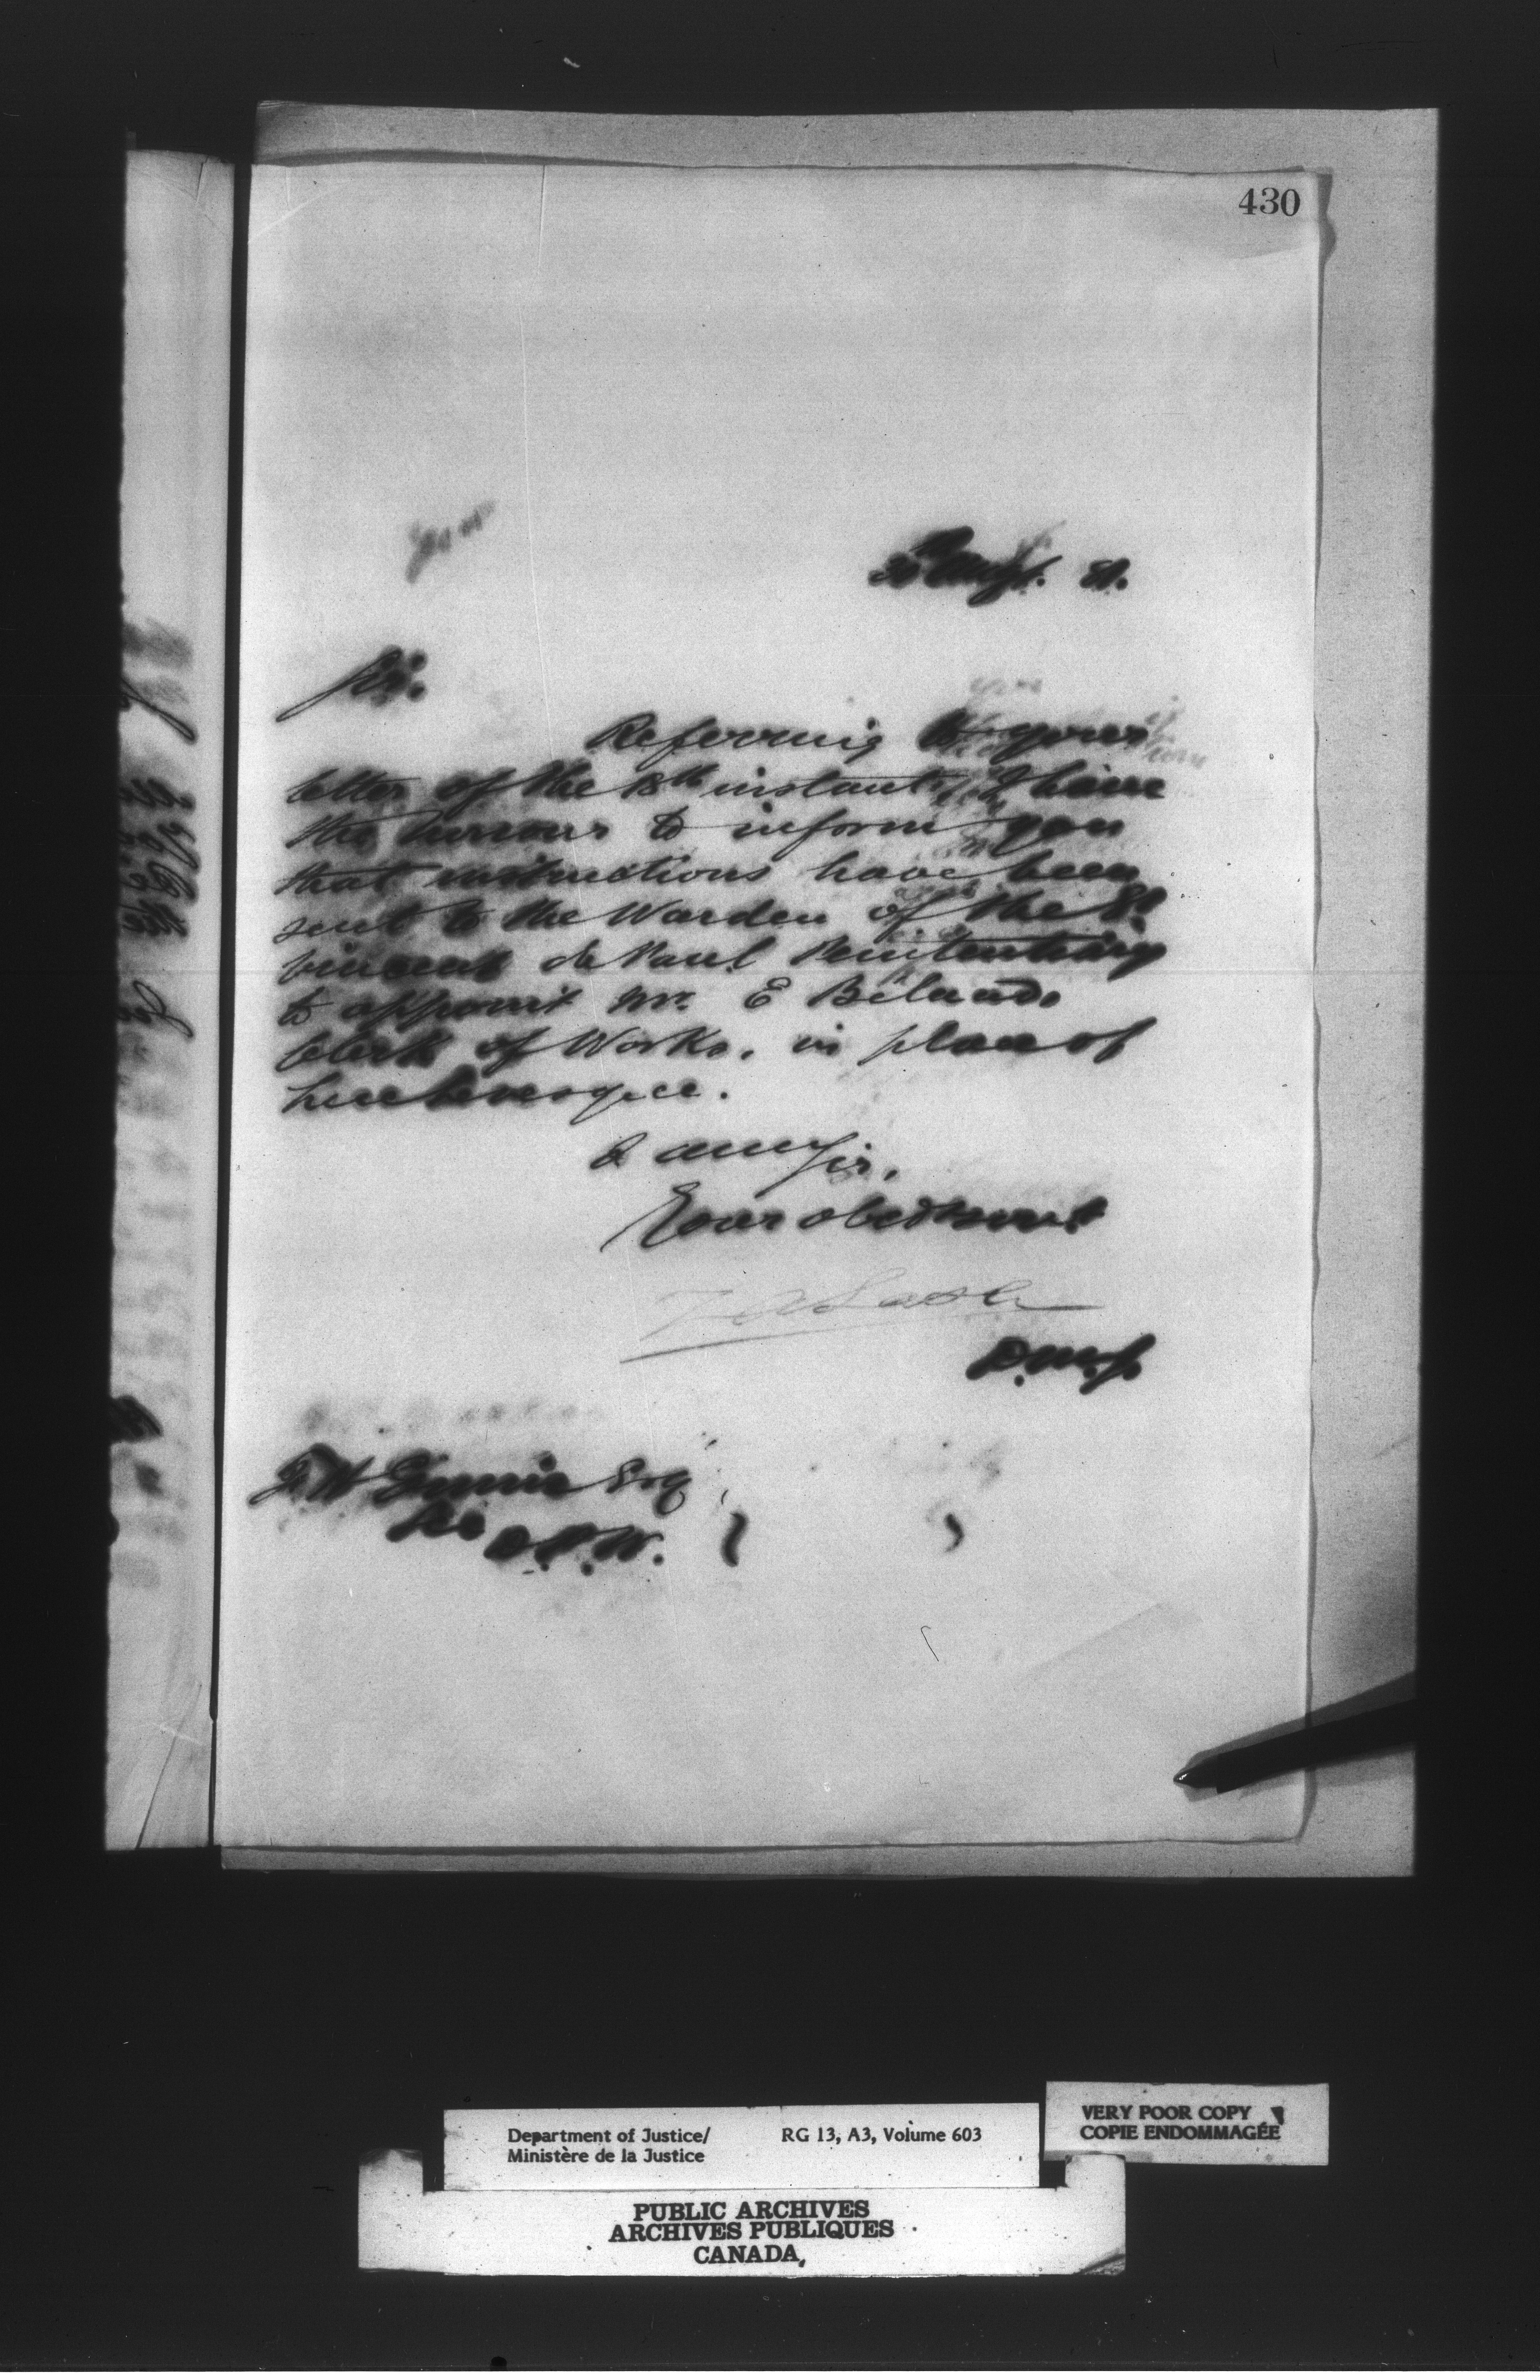 430
30 Augt. 81.
Sir.
Referring to your
letter of the 18th instant, I have
the honour to inform you
that instructions have been
sent to the Warden of the St
Vincent de Paul Penitentiary
to appoint Mr. E Béland
Clerk of Works. in place of
I am Sir,
Your obedt servt
Z A Lash
D.M.J.
F H Ennis Esq
Sec
D.P.W.
Department of Justice/ RG 13, A3, Volume 603
Ministère de la Justice
VERY POOR COPY
COPIE ENDOMMAGÉE
PUBLIC ARCHIVES
ARCHIVES PUBLIQUES
CANADA